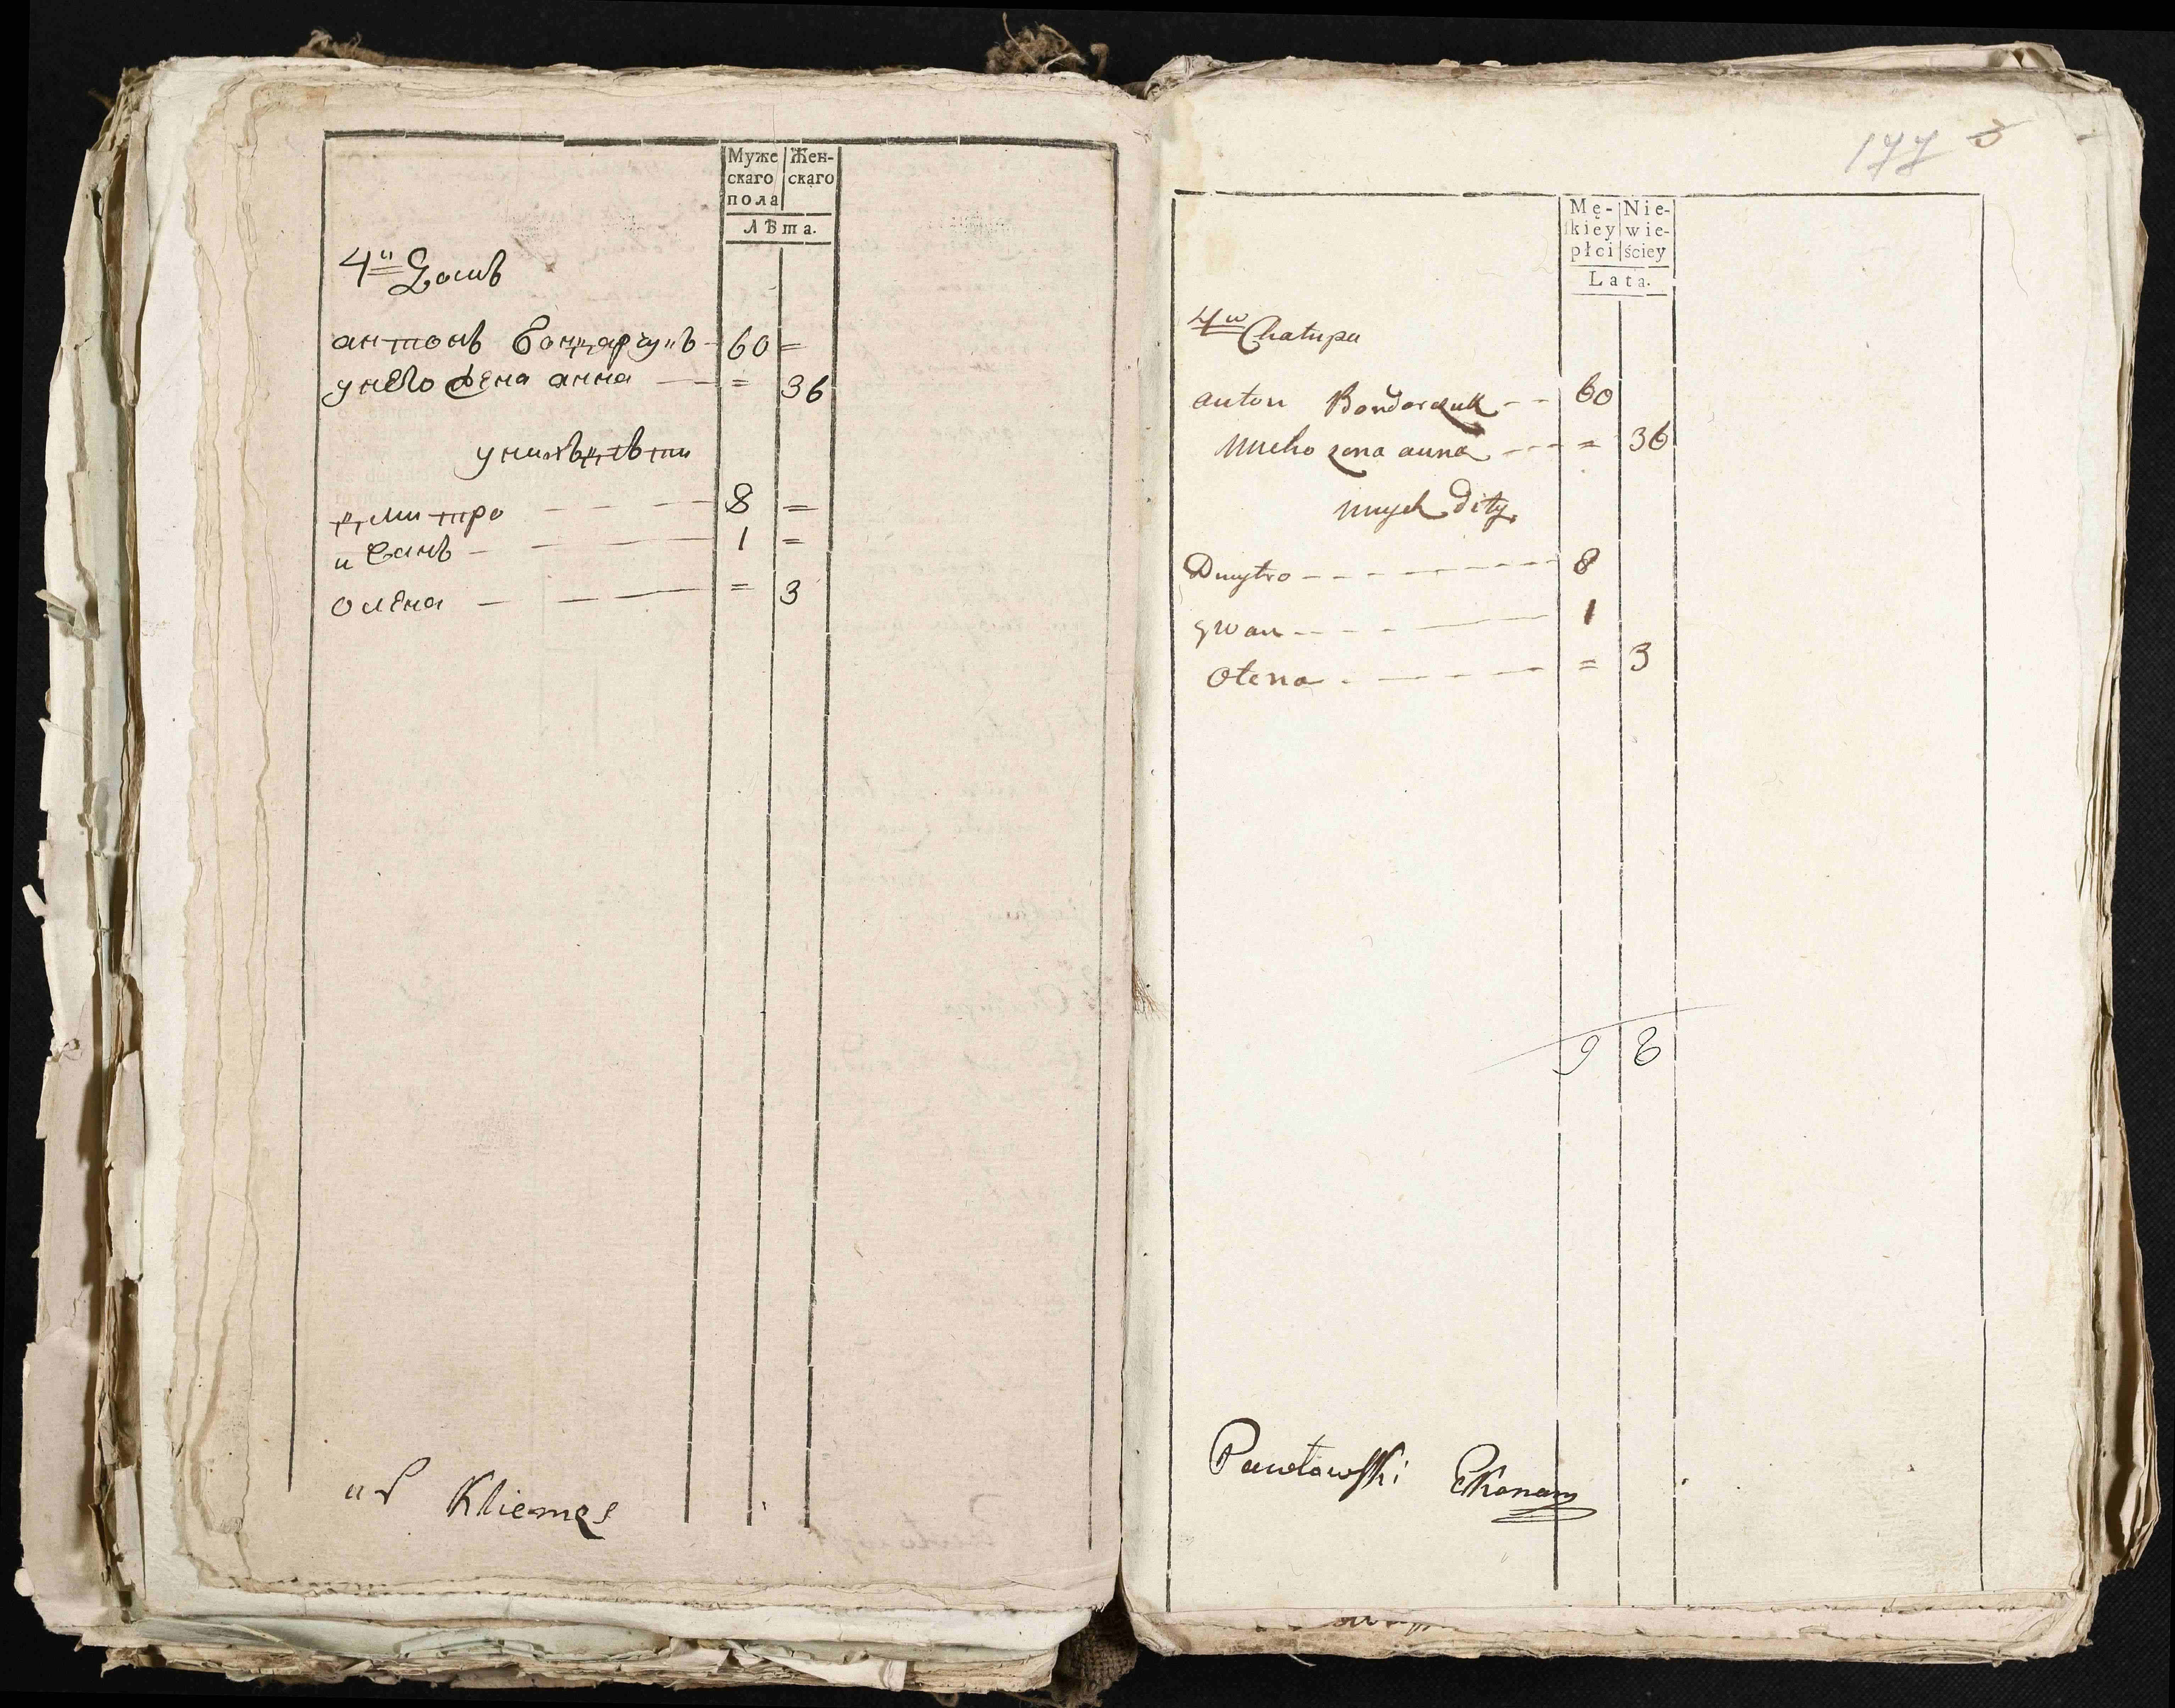 Муже скаго пола
Жен- скаго
Лѣта.
4й Домъ
антонъ бондарчукъ 60 =
унего жена анна = 36
унихъ дѣти
дмитро 8 =
иванъ 1 =
олена = 3
Kliemes
177
Mę- kiey płci
Nie- wie- ściey
Lata.
4ta Chałupa
anton Bondorczuk 60
Uneho zona anna = 36
Unych Dity
Dmytro 8
Jwan 1
Ołena = 3
9 8
Pawłowski Ekonam